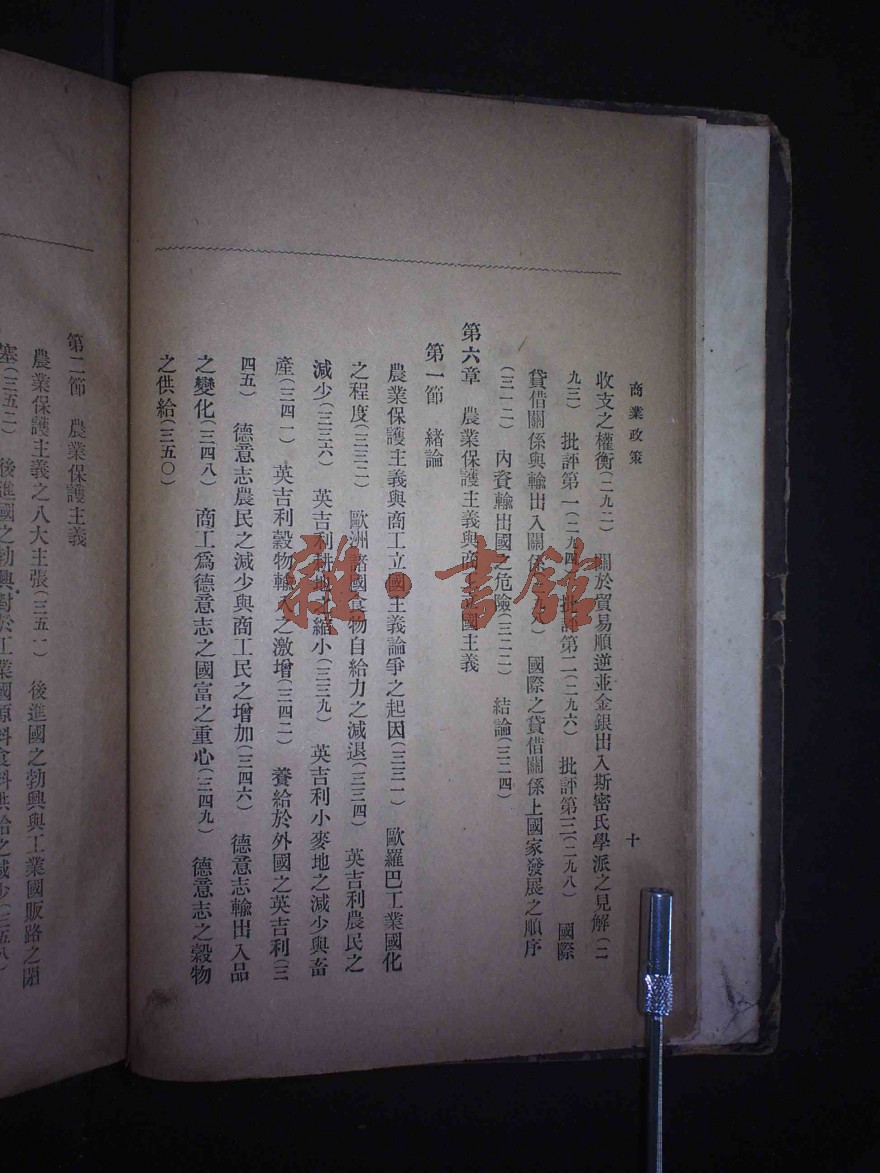 商業政策
十
收支之權衡(二九二) 關於貿易順逆並金銀出入斯密氏學派之見解(二
九三) 批評第一(二九四) 批評第二(二九六) 批評第三(二九八) 國際
貸借關係與輸出入關係 國際之貸借關係上國家發展之順序
(三一二) 內資輸出國之危險(三二二) 結論(三二四)
第六章 農業保護主義與商工立國主義
第一節 緒論
農業保護主義與商工立國主義論爭之起因(三三一) 歐羅巴工業國化
之程度(三三二) 歐洲諸國食物自給力之減退(三三四) 英吉利農民之
減少(三三六) 英吉利耕地之縮小(三三九) 英吉利小麥地之減少與畜
產(三四一) 英吉利穀物輸入之激增(三四二) 養給於外國之英吉利(三
四五) 德意志農民之減少與商工民之增加(三四六) 德意志輸出入品
之變化(三四八) 商工爲德意志之國富之重心(三四九) 德意志之穀物
之供給(三五〇)
第二節 農業保護主義
農業保護主義之八大主張(三五一) 後進國之勃興與工業國販路之閉
塞(三五二) 後進國之勃興對於工業國原料食料供給之減少(三五八)
雜·書館